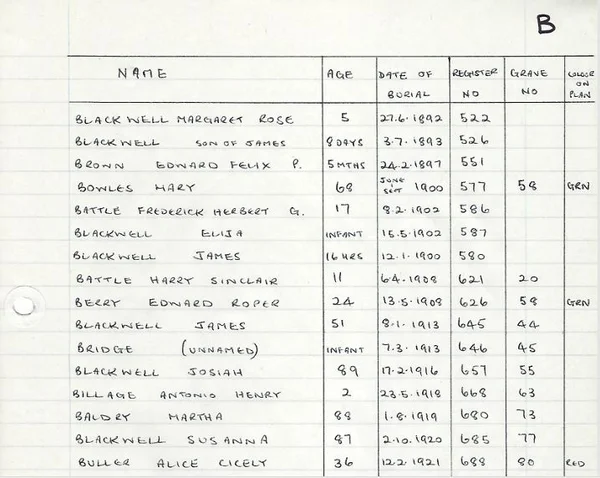 B
NAME AGE DATE OF BURIAL REGISTER NO GRAVE NO COLOUR ON PLAN
BLACKWELL MARGARET ROSE 5 27.6.1892 522
BLACKWELL SON OF JAMES 8 DAYS 3.7.1893 526
BROWN EDWARD FELIX P. 5 MTHS 24.2.1897 551
BOWLES MARY 68 JUNE & SEPT 1900 577 58 GRN
BATTLE FREDERICK HERBERT G. 17 8.2.1902 586
BLACKWELL ELIJA INFANT 15.5.1902 587
BLACKWELL JAMES 16 HRS 12.1.1900 580
BATTLE HARRY SINCLAIR 11 6.4.1908 621 20
BERRY EDWARD ROPER 24 13.5.1908 626 58 GRN
BLACKWELL JAMES 51 8.1.1913 645 44
BRIDGE (UNNAMED) INFANT 7.3.1913 646 45
BLACKWELL JOSIAH 89 17.2.1916 657 55
BILLAGE ANTONIO HENRY 2 23.5.1918 668 63
BALDRY MARTHA 88 1.8.1919 680 73
BLACKWELL SUSANNA 87 2.10.1920 685 77
BULLER ALICE CICELY 36 12.2.1921 688 80 RED